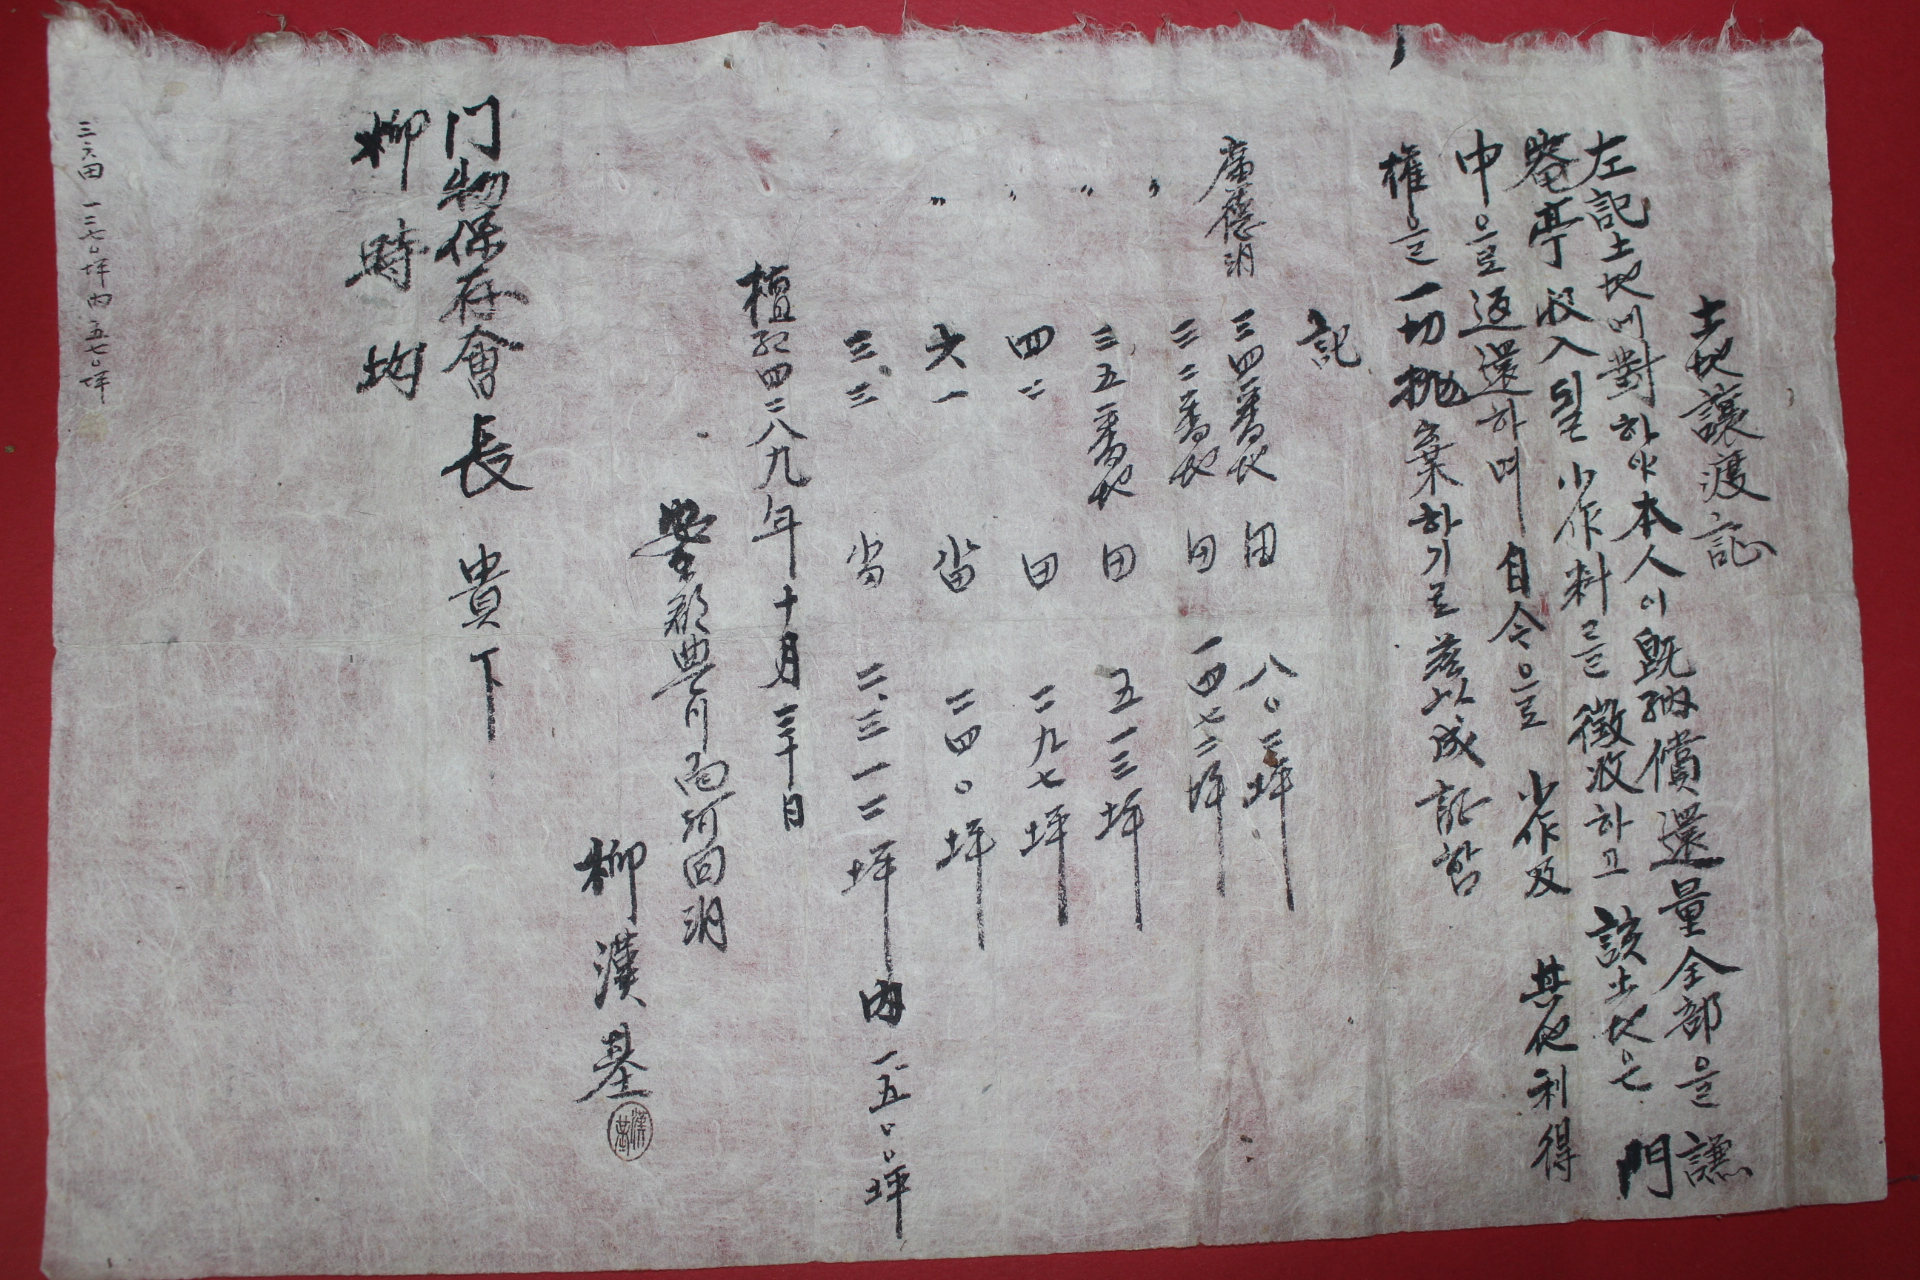 土地讓渡証
左記土地에對하야本人이旣納償還量全部을謙
菴亭收入될小作料를徵收하고該土地은門
中으로返還하며自今으로小作及其他利得
權을一切抛棄하기로玆以成証함
記
廣德洞 三四一番地 田 八〇三坪
〃 三二二番地 田 一四七二坪
〃 三五一番地 田 五一三坪
〃 四二 田 二九七坪
〃 六一 畓 二四〇坪
三三 畓 二、三一二坪內 一五〇〇坪
檀紀四二八九年十月三十日
郡豊川面河回洞
柳漢基
門物保存會長 貴下
柳時均
三六田 一二七〇坪內 五七〇坪